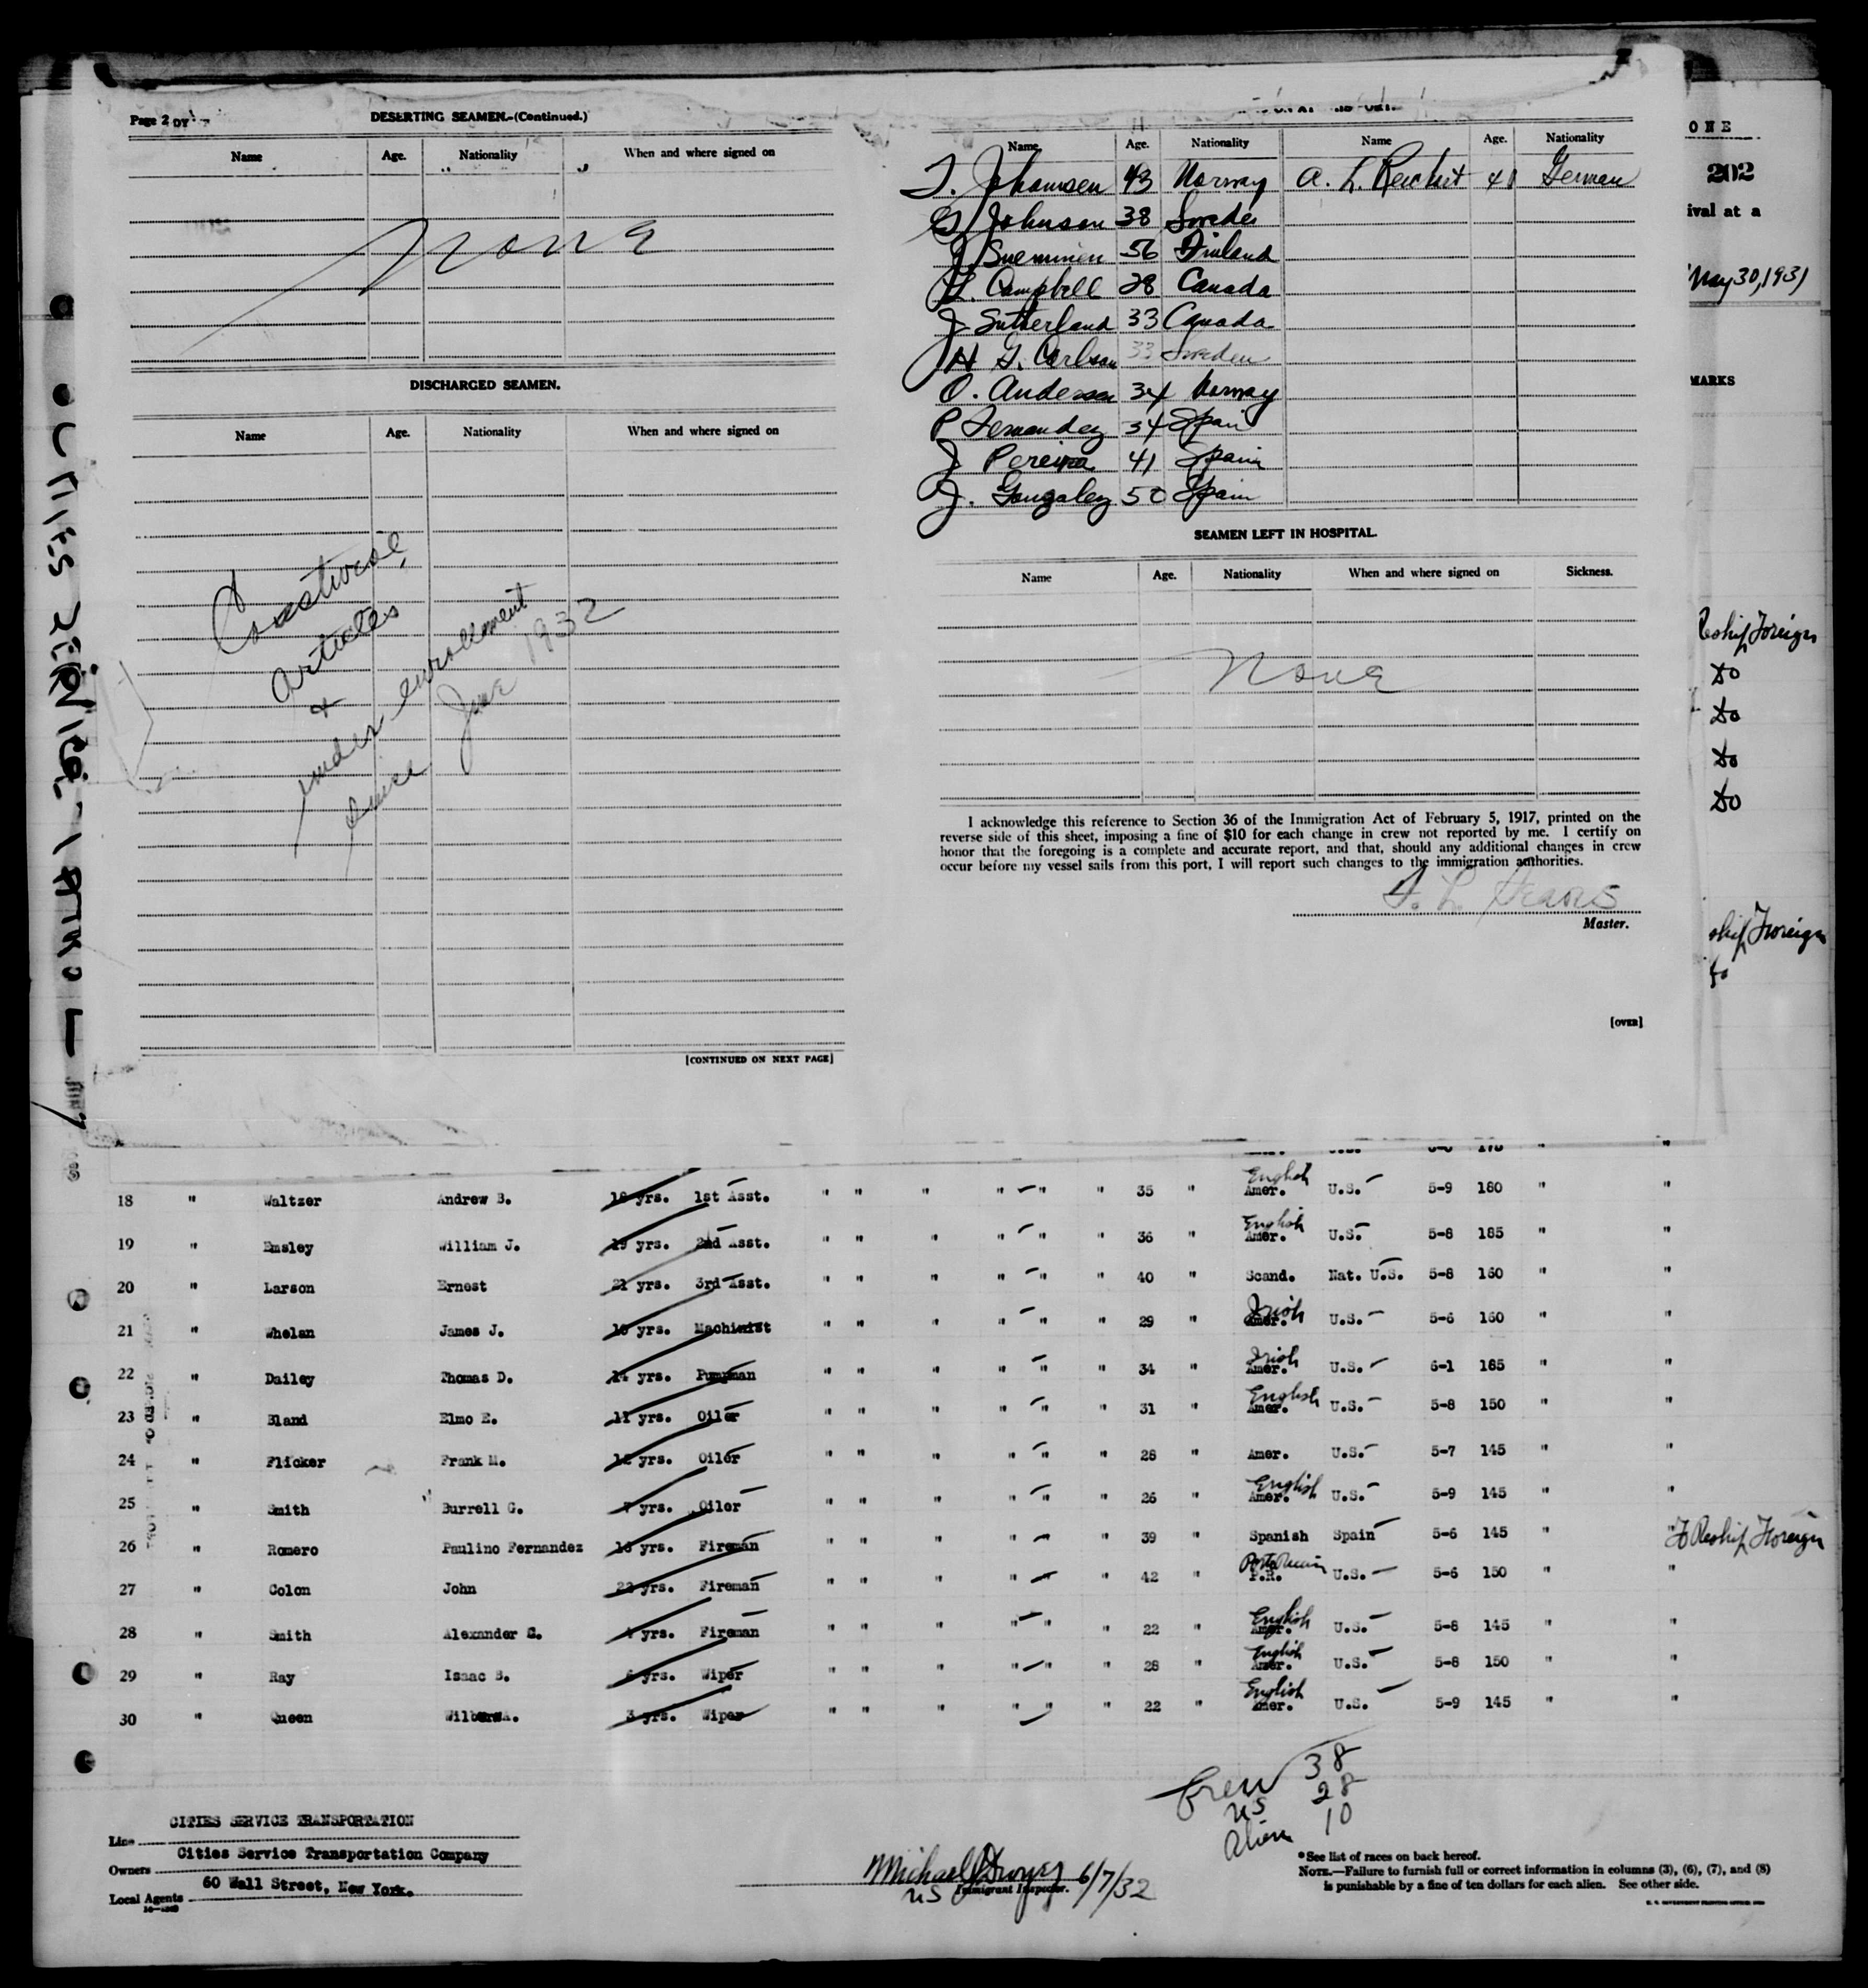 Page 2
DESERTING SEAMEN.-(Continued.)
Name Age. Nationality When and where signed on
None
DISCHARGED SEAMEN.
Name Age. Nationality When and where signed on
Coastwise
Articles
+
under enrollment
since June 1932
[CONTINUED ON NEXT PAGE]
Name Age. Nationality Name Age. Nationality
T. Johansen 43 Norway A. L. 41 German
G Johnson 38 Sweden
J Sueminen 56 Finland
L. Campbell 28 Canada
J Sutherland 33 Canada
H G. Carlson 33 Sweden
O. Andersen 34 Norway
P Fernandez 34 Spain
J Pereira 41 Spain
J. Gonzalez 50 Spain
SEAMEN LEFT IN HOSPITAL.
Name Age. Nationality When and where signed on Sickness.
None
I acknowledge this reference to Section 36 of the Immigration Act of February 5, 1917, printed on the
reverse side of this sheet, imposing a fine of $10 for each change in crew not reported by me. I certify on
honor that the foregoing is a complete and accurate report, and that, should any additional changes in crew
occur before my vessel sails from this port, I will report such changes to the immigration authorities.
Master.
[OVER]
ONE
202
ival at a
May 30, 1931
MARKS
Reship Foreign
Do
Do
Do
Do
ship Foreign
Do
CITIES SERVICE
18 " Waltzer Andrew B. yrs. 1st Asst. " " " " " " 35 " English Amer. U.S. 5-9 180 " "
19 " Emsley William J. yrs. 2nd Asst. " " " " " " 36 " English Amer. U.S. 5-8 185 " "
20 " Larson Ernest 21 yrs. 3rd Asst. " " " " " " 40 " Scand. Nat. U.S. 5-8 160 " "
21 " Whelan James J. yrs. Machinist " " " " " " 29 " Irish Amer. U.S. 5-6 160 " "
22 " Dailey Thomas D. 14 yrs. Pumpman " " " " " " 34 " Irish Amer. U.S. 6-1 185 " "
23 " Bland Elmo E. yrs. Oiler " " " " " " 31 " English Amer. U.S. 5-8 150 " "
24 " Flicker Frank M. yrs. Oiler " " " " " " 28 " Amer. U.S. 5-7 145 " "
25 " Smith Burrell G. 7 yrs. Oiler " " " " " " 26 " English Amer. U.S. 5-9 145 " "
26 " Romero Paulino Fernandez yrs. Fireman " " " " " " 39 " Spanish Spain 5-6 145 " " To Reship Foreign
27 " Colon John yrs. Fireman " " " " " " 42 " Porto Rican P.R. U.S. 5-6 150 " "
28 " Smith Alexander yrs. Fireman " " " " " " 22 " English Amer. U.S. 5-8 145 " "
29 " Ray Isaac B. yrs. Wiper " " " " " " 28 " English Amer. U.S. 5-8 150 " "
30 " Queen Wilbur A. 3 yrs. Wiper " " " " " " 22 " English Amer. U.S. 5-9 145 " "
Crew 38
US 28
Alien 10
Line CITIES SERVICE TRANSPORTATION
Owners Cities Service Transportation Company
Local Agents 60 Wall Street, New York.
Michael J Dwyer 6/7/32
US Immigrant Inspector.
*See list of races on back hereof.
NOTE.—Failure to furnish full or correct information in columns (3), (6), (7), and (8)
is punishable by a fine of ten dollars for each alien. See other side.